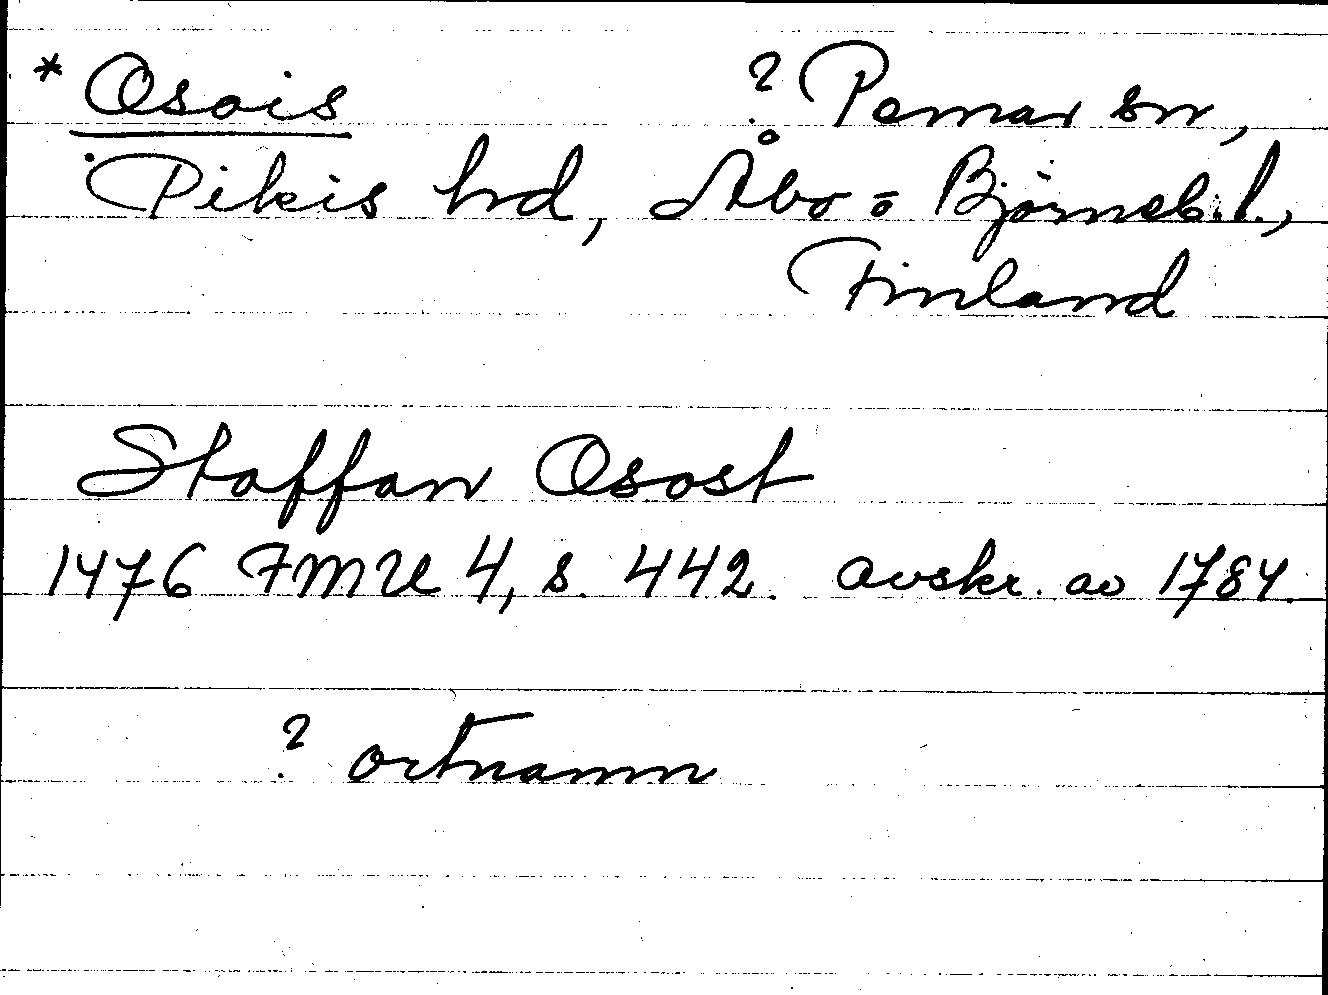 * Osois ? Pemar sn,
Pikis hd, Åbo = Björneb. l.,
Finland
Staffan Osost
1476 FMU 4, s. 442. avskr. av 1784.
? ortnamn